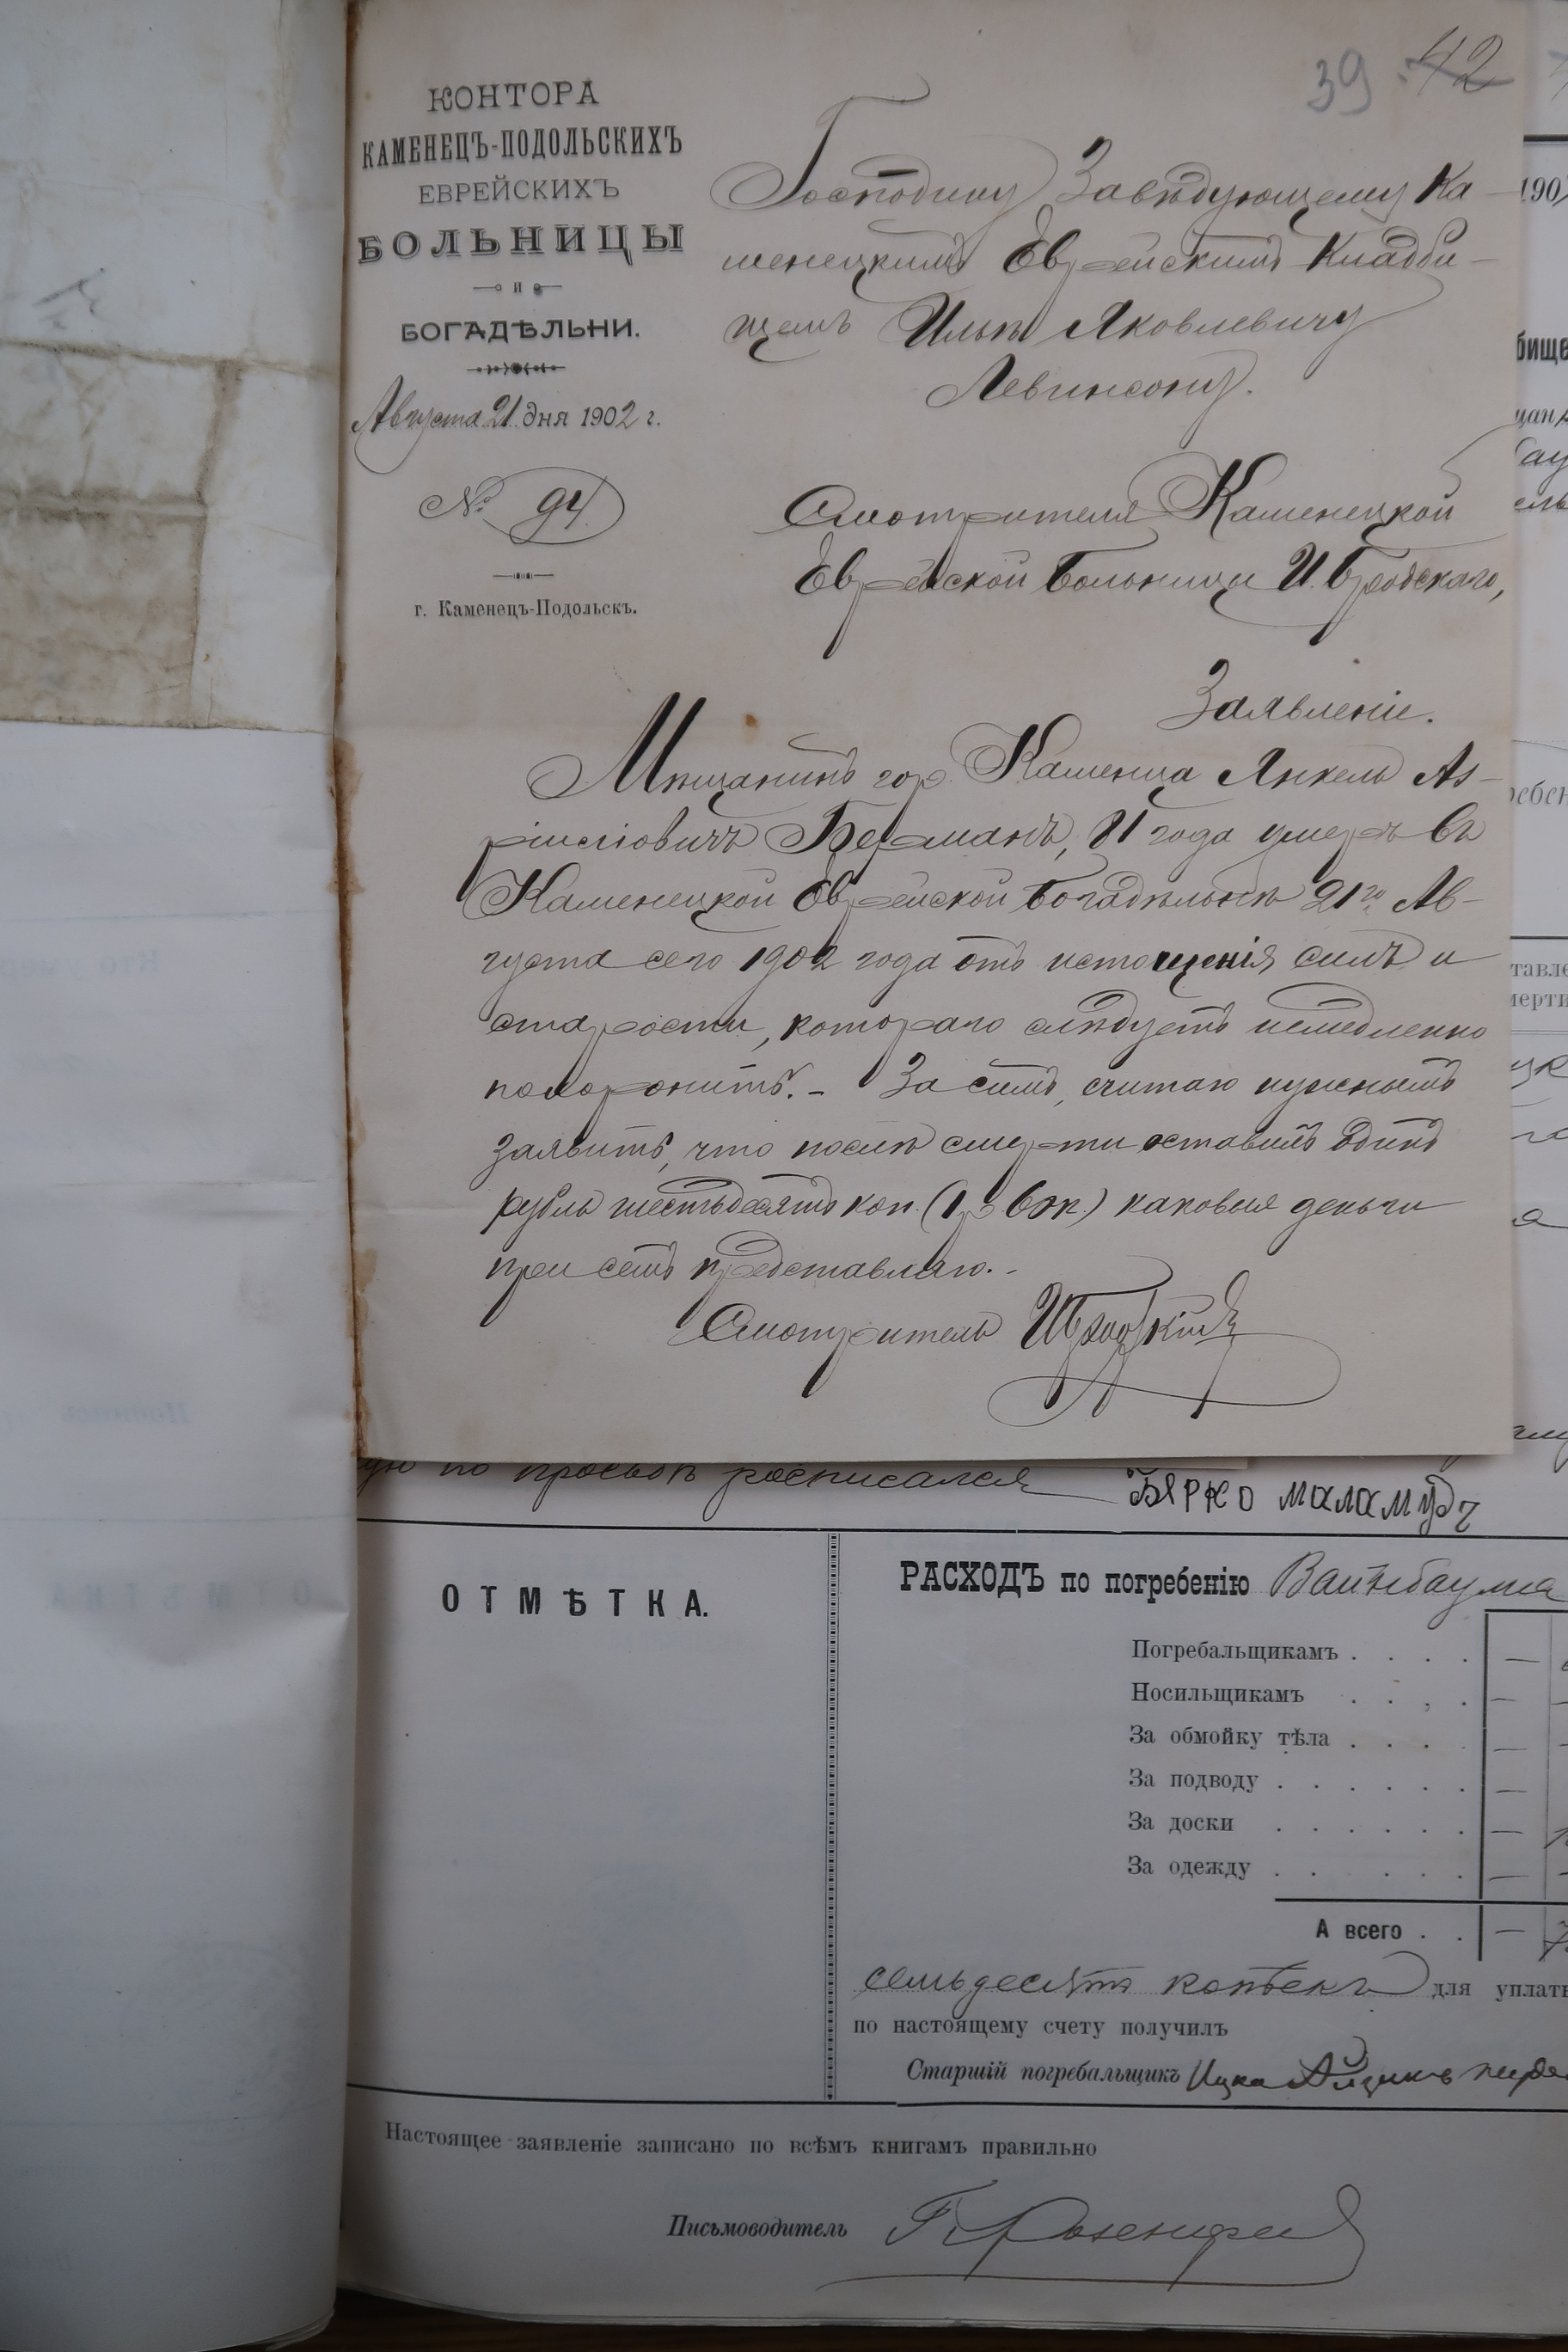 39 42
КОНТОРА
КАМЕНЕЦЪ-ПОДОЛЬСКИХЪ
ЕВРЕЙСКИХЪ
БОЛЬНИЦЫ
и
БОГАДѢЛЬНИ.
Августа 21 дня 1902 г.
№ 94
г. Каменецъ-Подольскъ.
Господину Завѣдующему Ка-
менецкимъ Еврейскимъ Кладби-
щемъ Ильѣ Яковлевичу
Левинсону.
Смотрителя Каменецкой
Еврейской Больницы И. Бродскаго,
Заявленіе.
Мѣщанинъ гор. Каменца Янкель Аз-
ріилiовичъ Берманъ, 81 года умеръ въ
Каменецкой Еврейской Богадѣльнѣ 21го Ав-
густа сего 1902 года отъ истощенія силъ и
старости, котораго слѣдуетъ немедленно
похоронить. - За симъ, считаю нужнымъ
заявить, что послѣ смерти оставилъ одинъ
рубль шестьдесятъ коп. (1 р 60 к.) каковыя деньги
при семъ представляю. -
Смотритель ИБродскій
190
бище
ребен
тавле
мерти
по просьбѣ росписался Бярко маламудъ
ОТМѢТКА.
РАСХОДЪ по погребенію Вайнбаума
Погребальщикамъ . . . . —
Носильщикамъ . . . . —
За обмойку тѣла . . . . —
За подводу . . . . . . —
За доски . . . . . . —
За одежду . . . . . —
А всего . . —
семьдесятъ копѣекъ для уплаты
по настоящему счету получилъ
Старшій погребальщикъ Ицко Айзикъ
Настоящее заявленіе записано по всѣмъ книгамъ правильно
Письмоводитель Г. Розенфел